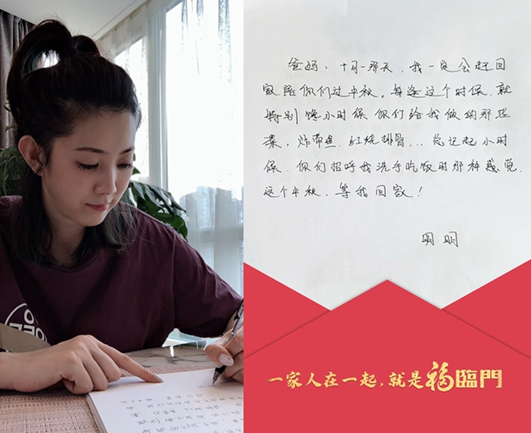 爸妈：十月一那天，我一定会赶回
家陪你们过中秋。每逢过个时候，就
特别馋小时候你们给我做的那些
菜，炸带鱼，红烧排骨...总记起小时
候，你们招呼我洗手吃饭时那种感觉。
这个中秋，等我回家！
明明
一家人在一起，就是福臨門